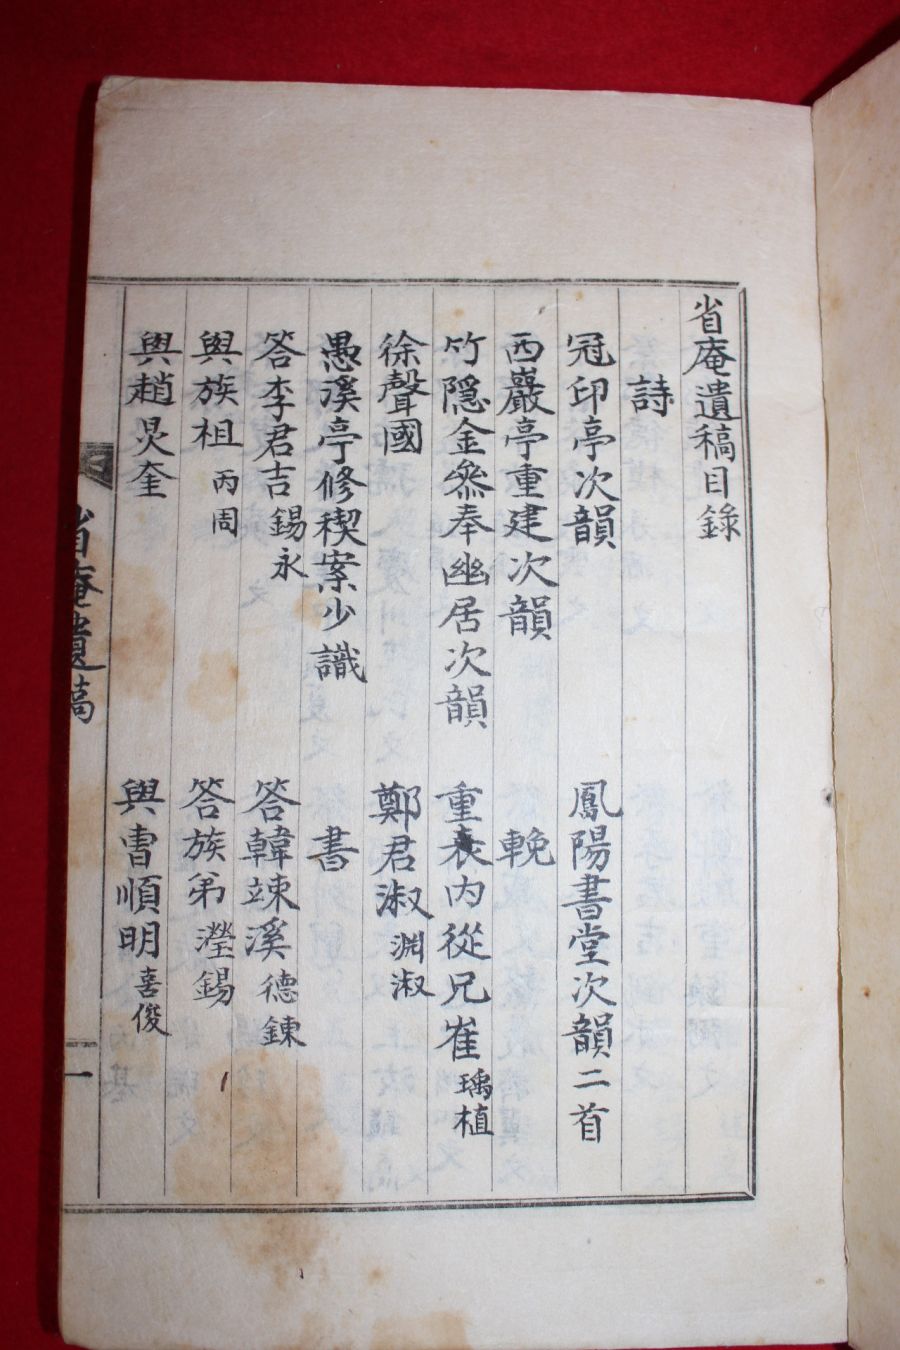 省庵遺稿目錄
詩
冠印亭次韻 鳳陽書堂次韻二首
西巖亭重建次韻 輓
竹隱金叅奉幽居次韻 重表內從兄崔瑀植
徐聲國 鄭君淑淵淑
愚溪亭修稧案少識 書
答李君吉錫永 答韓竦溪德鍊
與族祖丙周 答族弟瀅錫
與趙炅奎 與曺順明喜俊
省庵遺稿
一